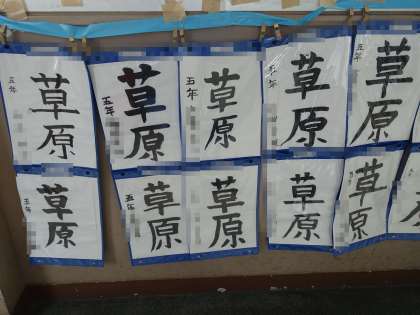 草原
五年
草原
五年
草原
五年
草原
五年
草原
五年
草原
五年
草原
五年
草原
草原
草原
草原